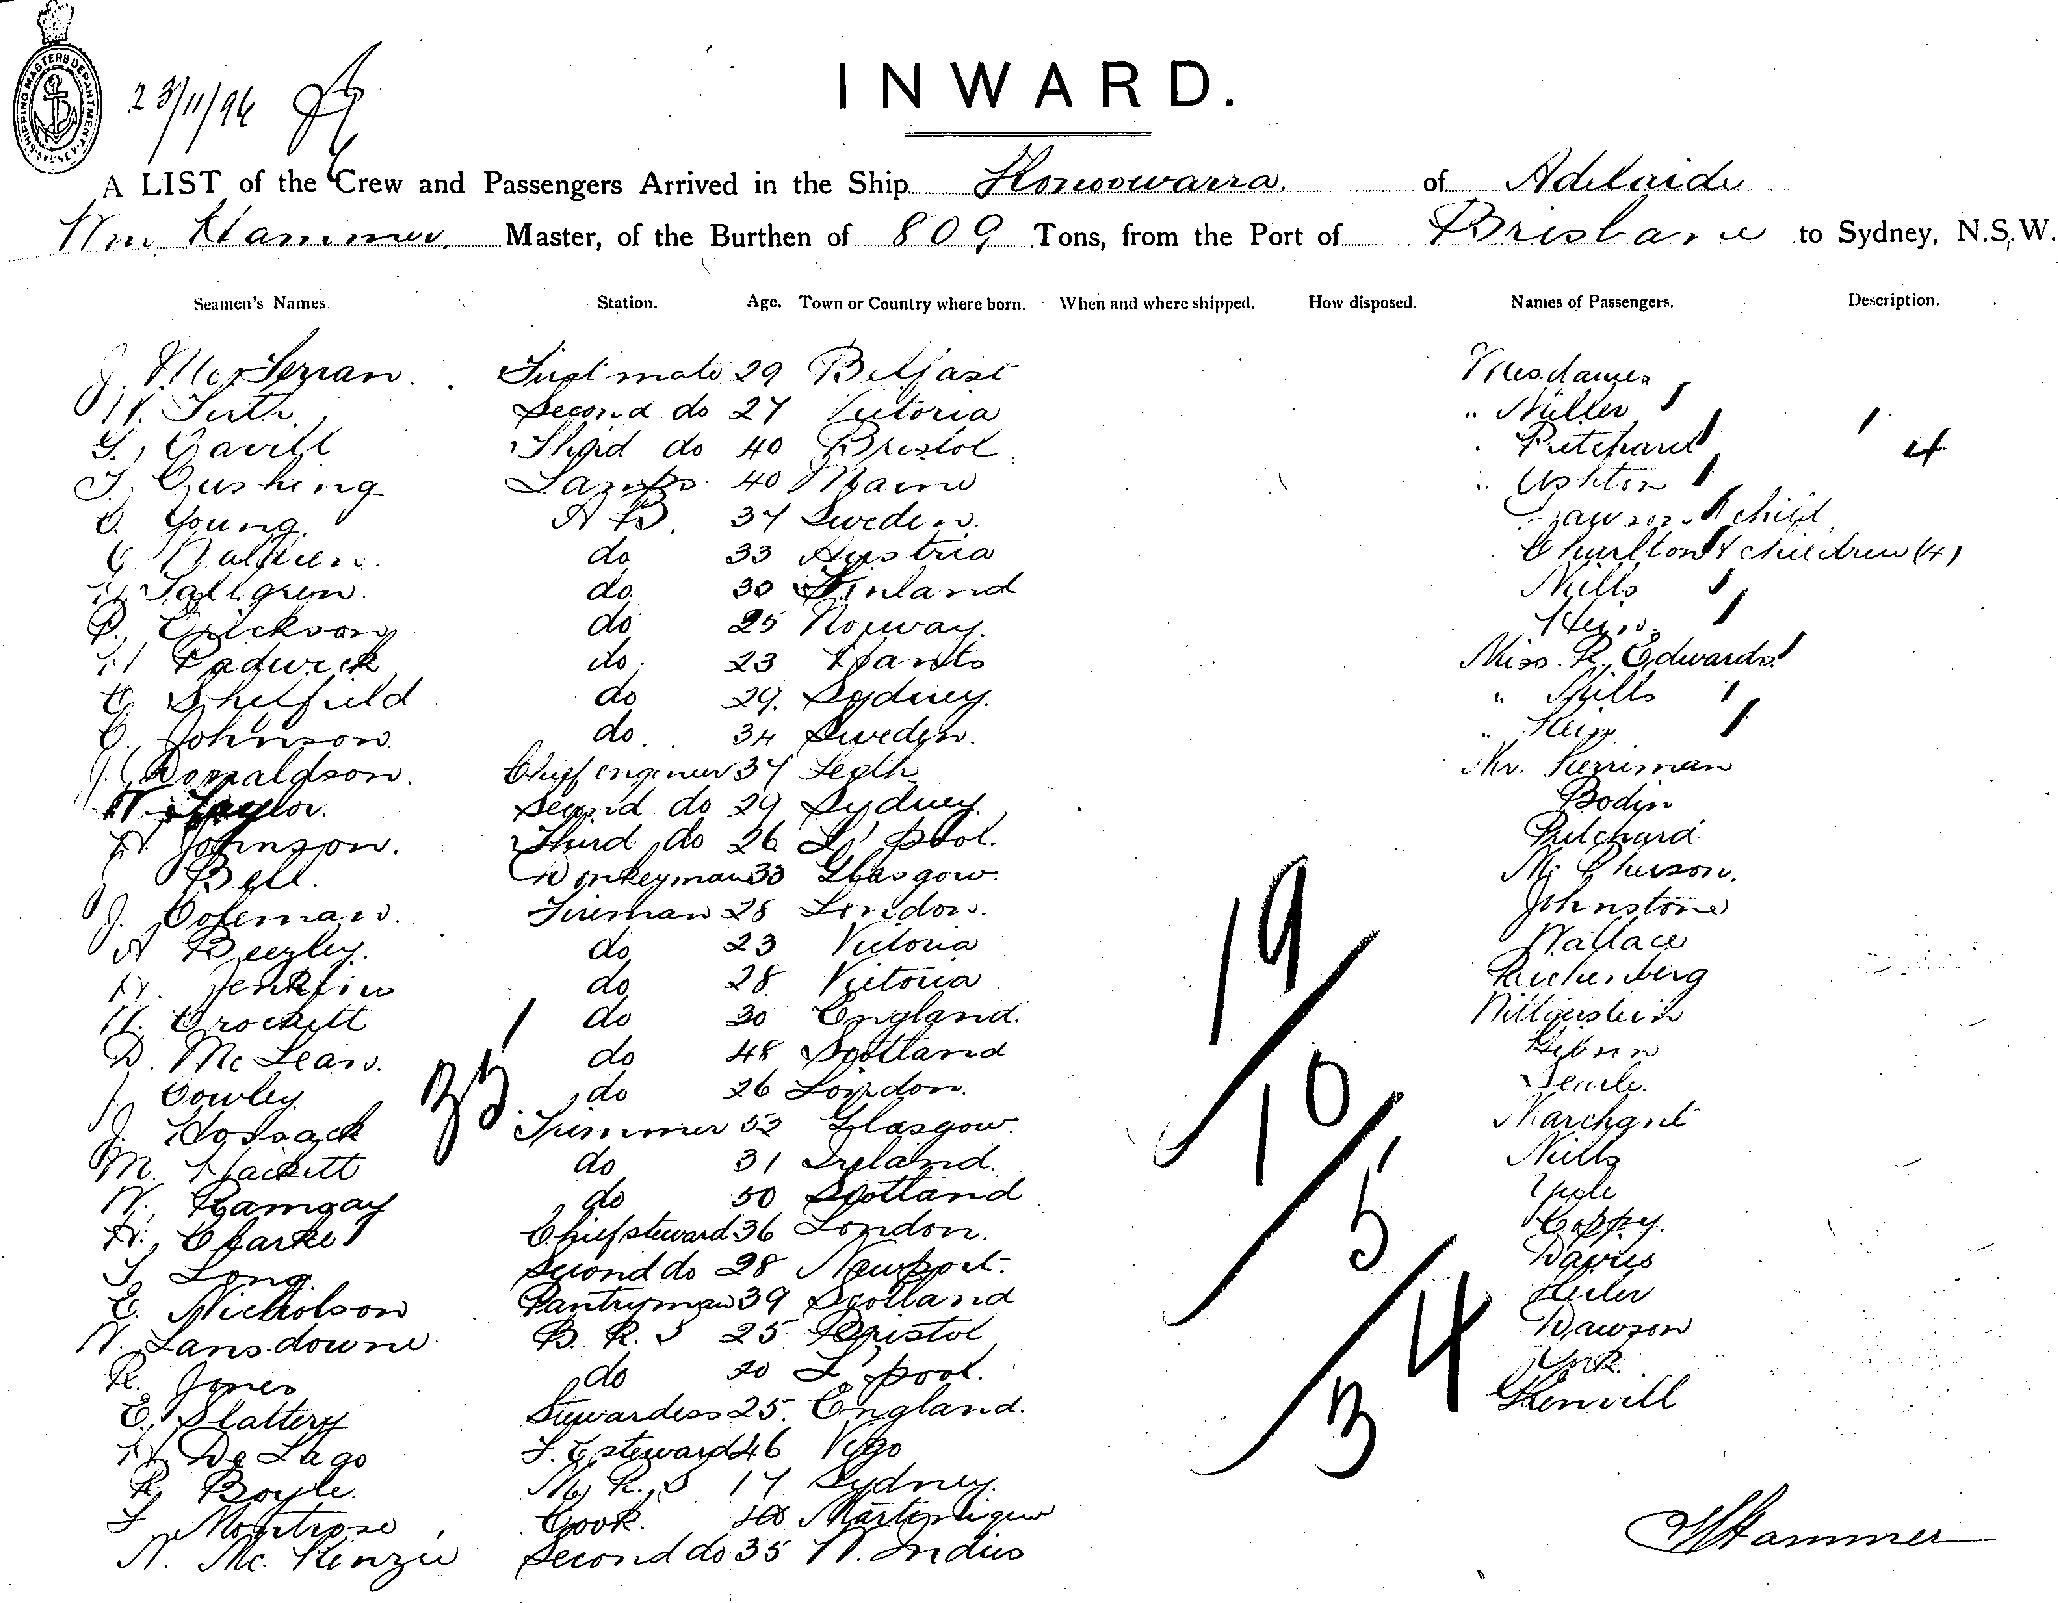 SHIPPING MASTERS DEPARTMENT
23/11/96
INWARD.
A LIST of the Crew and Passengers Arrived in the Ship Konoowarra. of Adelaide
Wm Hammer. Master, of the Burthen of 809 Tons, from the Port of Brisbane to Sydney, N.S.W.
Seamen's Names. Station. Age. Town or Country where born. When and where shipped. How disposed. Names of Passengers. Description.
J. First mate 29 Belfast Mesdames
W. Firth Second do 27 Victoria " Miller
G. Cavill Third do 40 Bristol Pritchard 4
T. Cushing Lamps 40 Maine Ashton
Young A B. 37 Sweden. Dawson & child
do 33 Austria Charlton & children (4)
Tallgren. do 30 Finland Mills
P. Erickson do 25 Norway.
H Padwick do. 23 Hants Miss. R. Edwards
C. Sheffield do 29. Sydney. " Mills
C. Johnson. do. 34 Sweden.
J. Donaldson. Chief engineer 37 Leith Mr. Perriman
W. Taylor. Second do 29 Sydney. Bodin
A Johnson. Third do 26 L'pool. Pritchard
J Bell. Donkeyman 33 Glasgow. McPherson.
J. Coleman. Fireman 28 London. Johnstone
A Beezley. do 23 Victoria Wallace
H. Jenkins do 28 Victoria Reichenberg
W. Crockett do 30 England. Wittgenstein
D. McLean. do 48 Scotland
J. Cowley do 26 London. Searle.
J. Hossack Trimmer 52 Glasgow. Marchant
M. Hackett do 31 Ireland. Mills
W. Ramsay do 50 Scotland
H. Clarke Chief steward 36 London. Coppy.
T. Long. Second do 28 Newport. Davies
E. Nicholson Pantryman 39 Scotland
W. Lansdowne B. R. S 25 Bristol Dawson
R. Jones do 20 L'pool. York
E. Slattery Stewardess 25. England. Glenvill
A. De Lago F. C steward 46 Vigo
R. Boyle. M. R. S 17 Sydney.
F Montrose Cook. Martinique
N. McKenzie Second do 35 W. Indies
35
19/10/5/4
3
W Hammer